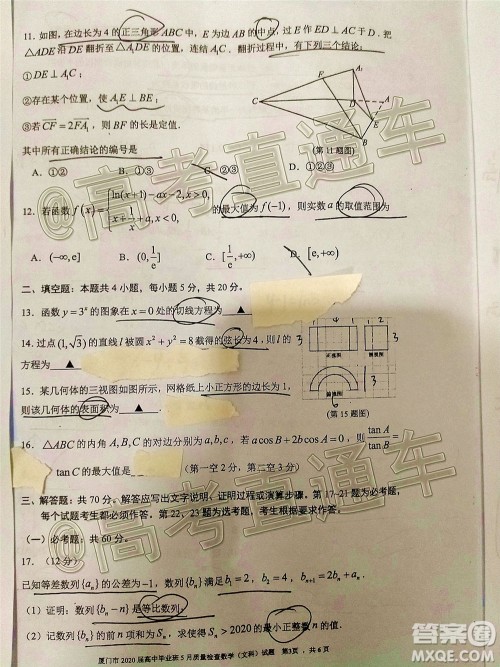 11. 如图，在边长为 4 的正三角形 ABC 中，E 为边 AB 的中点，过 E 作 ED⊥AC 于 D. 把
△ADE 沿 DE 翻折至 △A₁DE 的位置，连结 A₁C. 翻折过程中，有下列三个结论：
①DE⊥A₁C；
②存在某个位置，使 A₁E⊥BE；
③若 CF=2FA₁，则 BF 的长是定值.
其中所有正确结论的编号是
A. ①② B. ①③ C. ②③ D. ①②③
A₁
F
C
D
A
E
B
(第 11 题图)
12. 若函数 f(x)={ln(x+1)−ax−2, x>0, x+1/x+a, x<0, 的最大值为 f(−1)，则实数 a 的取值范围为
A. (−∞,e] B. (0,1/e] C. [1/e,+∞) D. [e,+∞)
二、填空题：本题共 4 小题，每小题 5 分，共 20 分。
13. 函数 y=3ˣ 的图象在 x=0 处的切线方程为 ▲
14. 过点 (1,√3) 的直线 l 被圆 x²+y²=8 截得的弦长为 4，则 l 的
方程为 ▲
15. 某几何体的三视图如图所示，网格纸上小正方形的边长为 1，
则该几何体的表面积为 ▲
正视图
侧视图
俯视图
(第 15 题图)
16. △ABC 的内角 A,B,C 的对边分别为 a,b,c，若 a cos B+2b cos A=0，则 tan A/tan B=
tan C 的最大值是 (第一空 2 分，第二空 3 分)
三、解答题：共 70 分。解答应写出文字说明、证明过程或演算步骤。第 17~21 题为必考题，
每个试题考生都必须作答。第 22、23 题为选考题，考生根据要求作答。
(一) 必考题：共 60 分。
17. (12 分)
已知等差数列{aₙ}的公差为−1，数列{bₙ}满足 b₁=2，b₂=4，bₙ₊₁=2bₙ+aₙ.
(1) 证明：数列{bₙ−n}是等比数列；
(2) 记数列{bₙ}的前 n 项和为 Sₙ，求使得 Sₙ>2020 的最小正整数 n 的值.
厦门市 2020 届高中毕业班 5 月质量检查数学（文科）试题 第3页，共 6 页
@高考直通车
@高考直通车
@高考直通车
作业帮
答案圈